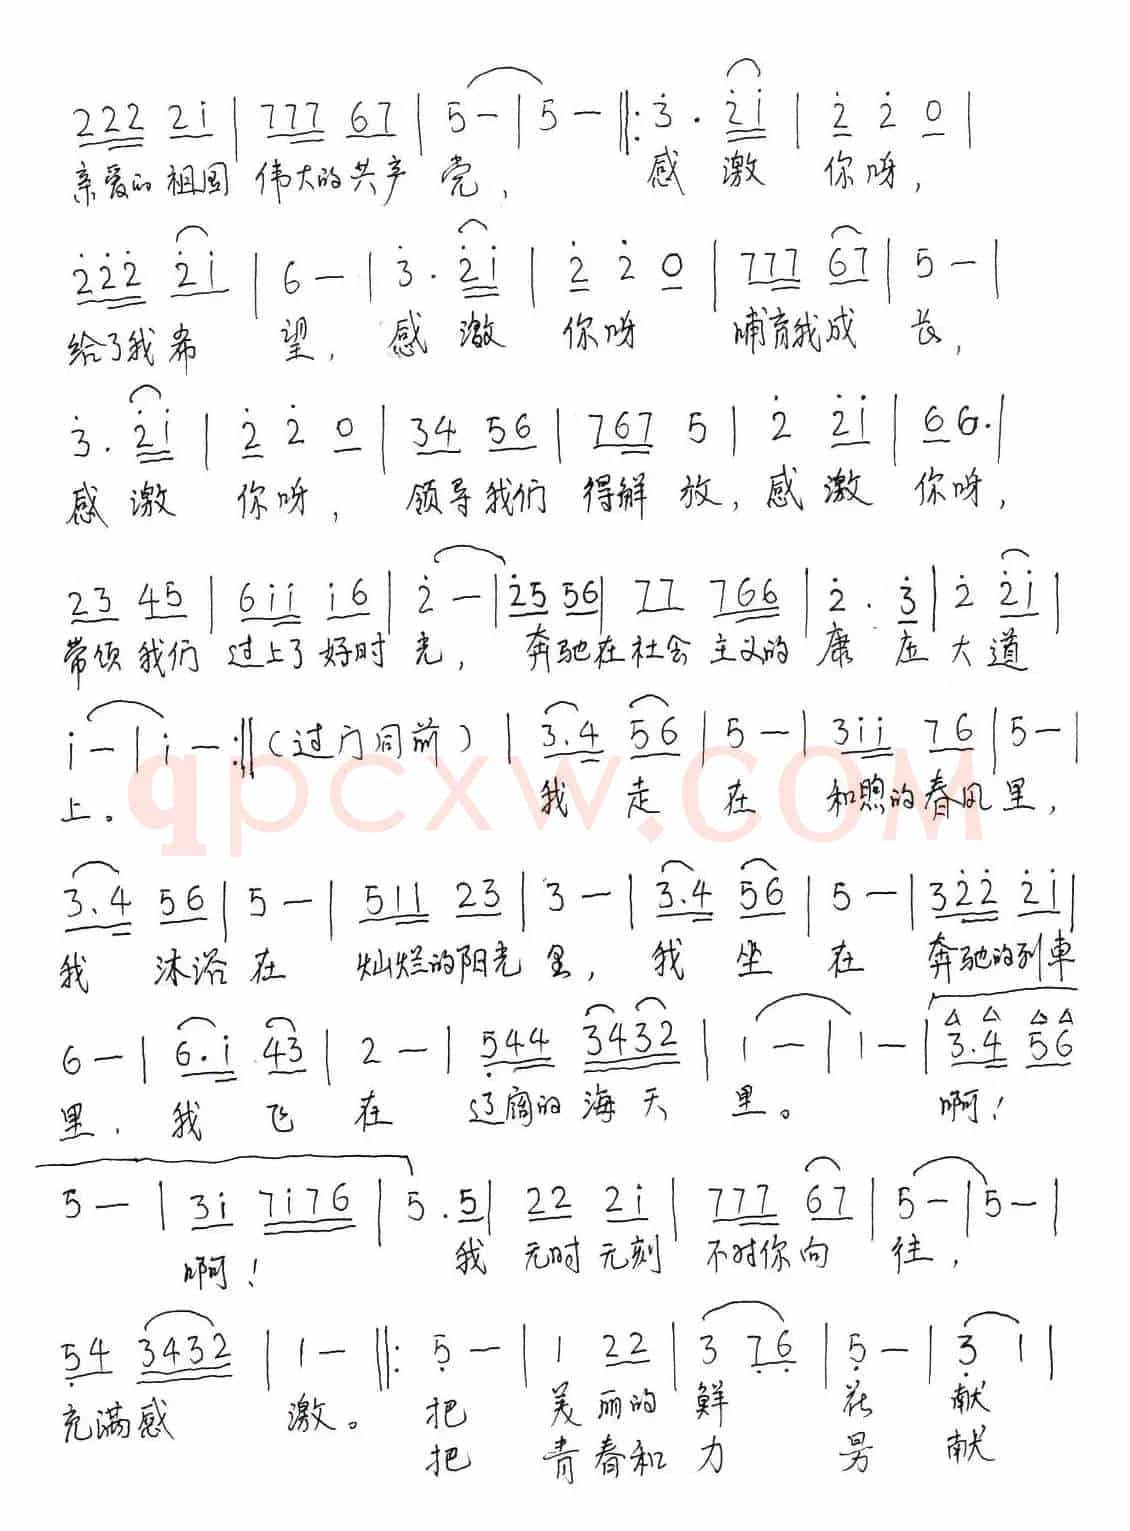 222 2i | 777 67 | 5 – | 5 – ‖: 3̇ . 2̇i | 2̇ 2̇ 0 |
亲爱的祖国 伟大的共产 党， 感 激 你呀，
2̇2̇2̇ 2̇i | 6 – | 3̇ . 2̇i | 2̇ 2̇ 0 | 777 67 | 5 – |
给了我希 望， 感 激 你呀 哺育我成 长，
3̇ . 2̇i | 2̇ 2̇ 0 | 34 56 | 767 5 | 2̇ 2̇i | 6 6. |
感 激 你呀， 领导我们 得解 放，感 激 你呀，
23 45 | 6ii i6 | 2̇ – | 2̇5 56 | 77 766 | 2̇ . 3̇ | 2̇ 2̇i |
带领我们 过上了好时 光， 奔驰在社会 主义的 康 庄 大 道
i – | i – :‖ (过门同前) | 3.4 56 | 5 – | 3ii 76 | 5 – |
上。 我 走 在 和煦的春风里，
qpcxw.COM
3.4 56 | 5 – | 511 23 | 3 – | 3.4 56 | 5 – | 32̇2̇ 2̇i |
我 沐浴在 灿烂的阳光 里， 我 坐 在 奔驰的列車
6 – | 6.i 43 | 2 – | 5̣44 3432 | 1 – | 1 – | 3.4 56
里， 我 飞 在 辽阔的 海 天 里。 啊！
5 – | 3i 7i76 | 5 . 5 | 22 2i | 777 67 | 5 – | 5 – |
啊！ 我 无时无刻 不对你向 往，
5̣4 3432 | 1 – ‖: 5̣ – | 1 22 | 3 7̣6̣ | 5̣ – | 3 1 |
充满感 激。 把 美丽的 鲜 花 献
把 青春和 力 量 献